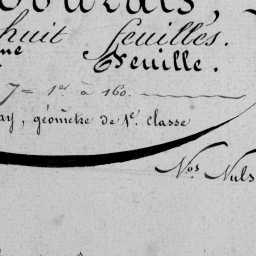 huit feuilles.
ne Feuille.
7= 1er à 160.
ay, géomètre de 1e. classe
Nos Nuls